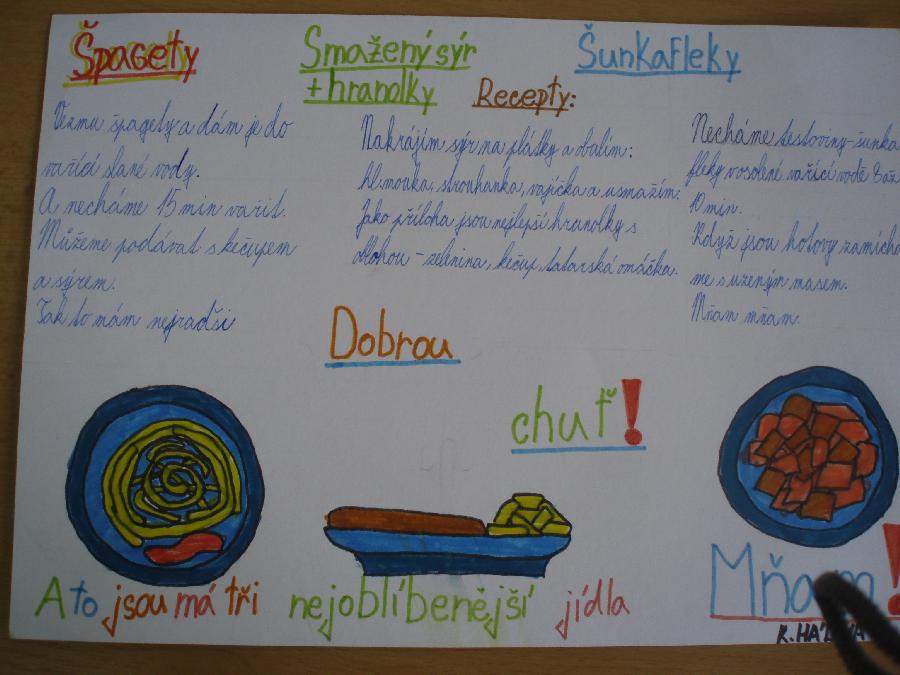 Špagety
Smažený sýr
+ hranolky
Šunkafleky
Recepty:
Vezmu špagety a dám je do
vařící slané vody.
A necháme 15 min vařit.
Můžeme podávat s kečupem
a sýrem.
Tak to mám nejradši
Nakrájím sýr na plátky a obalím:
hl.mouka, strouhanka, vajíčka a usmažím.
Jako příloha jsou nejlepší hranolky s
oblohou - zelenina, kečup, tatarská omáčka.
Necháme těstoviny - šunka
fleky v osolené vařící vodě 8 až
10 min.
Když jsou hotovy zamíchá
me s uzeným masem.
Mňam mňam.
Dobrou
chuť!
A to jsou má tři nejoblíbenější jídla
Mňam!